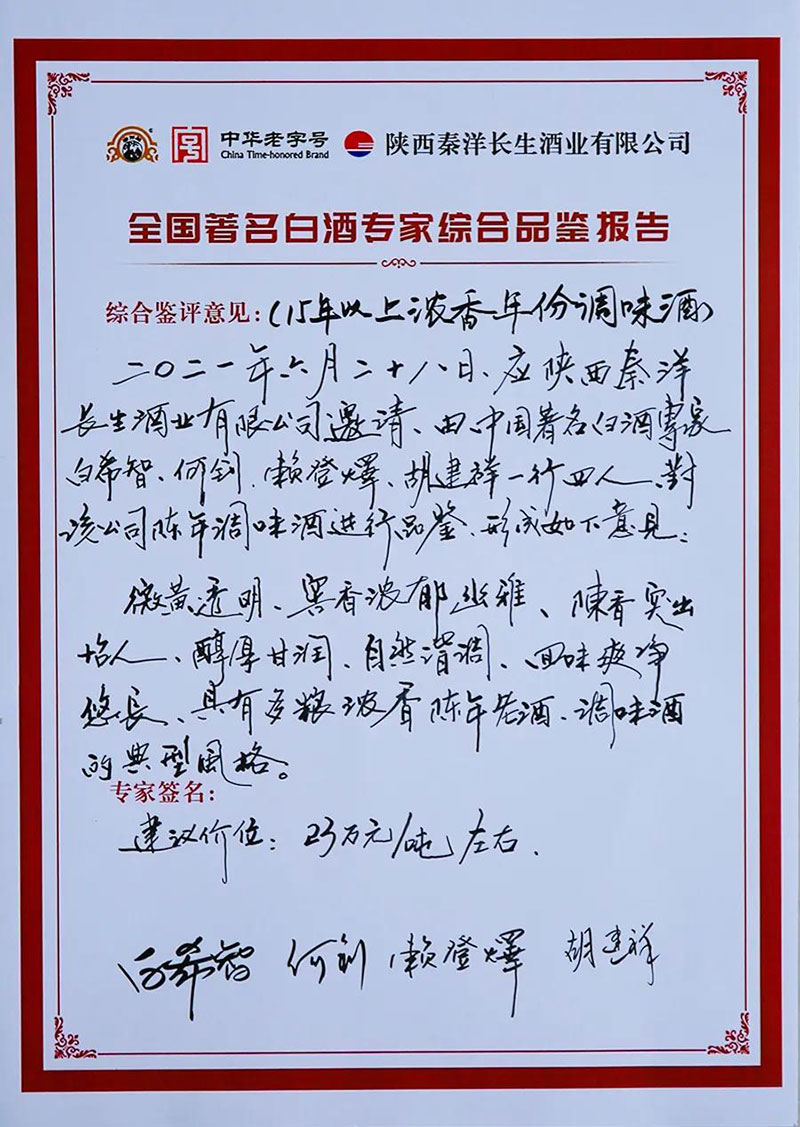 中华老字号 陕西秦洋长生酒业有限公司
China Time-honored Brand
全国著名白酒专家综合品鉴报告
综合鉴评意见：（15年以上浓香年份调味酒）
二〇二一年六月二十八日、应陕西秦洋
长生酒业有限公司邀请、由中国著名白酒專家
白希智、何钊、赖登燡、胡建祥一行四人、對
该公司陈年调味酒进行品鉴、形成如下意见：
微黄透明、窖香浓郁幽雅、陳香突出
怡人、醇厚甘润、自然谐调、回味爽净
悠長、具有多粮浓香陈年老酒、调味酒
的典型風格。
专家签名：
建议价位：23万元/吨左右.
白希智 何钊 赖登燡 胡建祥